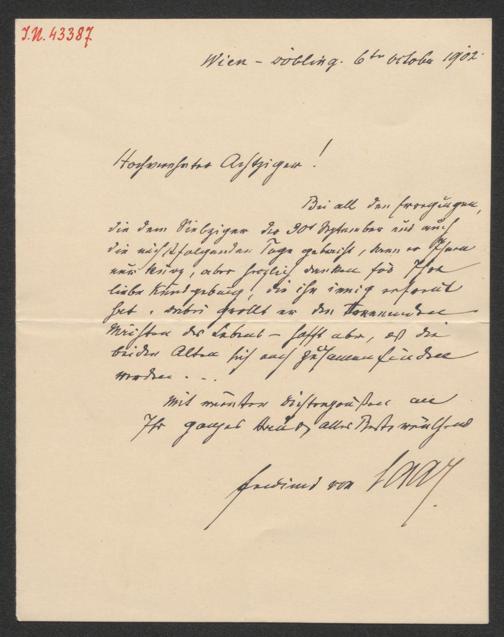 I.N. 43387
Wien – Döbling. 6ter October 1902.
Hochverehrter Achtziger!
Bei all den Erregungen,
die dem Siebziger der 30t September und auch
die nächstfolgenden Tage gebracht, kann er Ihnen
nur kurz, aber herzlich danken für Ihre
liebe Kundgebung, die ihn innig erfreut
hat. Dabei grollt er den trennenden
Mächten des Lebens – hofft aber, daß die
beiden Alten sich noch zusammenfinden
werden. . . .
Mit Dichtergrüßen an
Ihr ganzes Haus, alles Beste wünschend
Ferdinand von Saar.